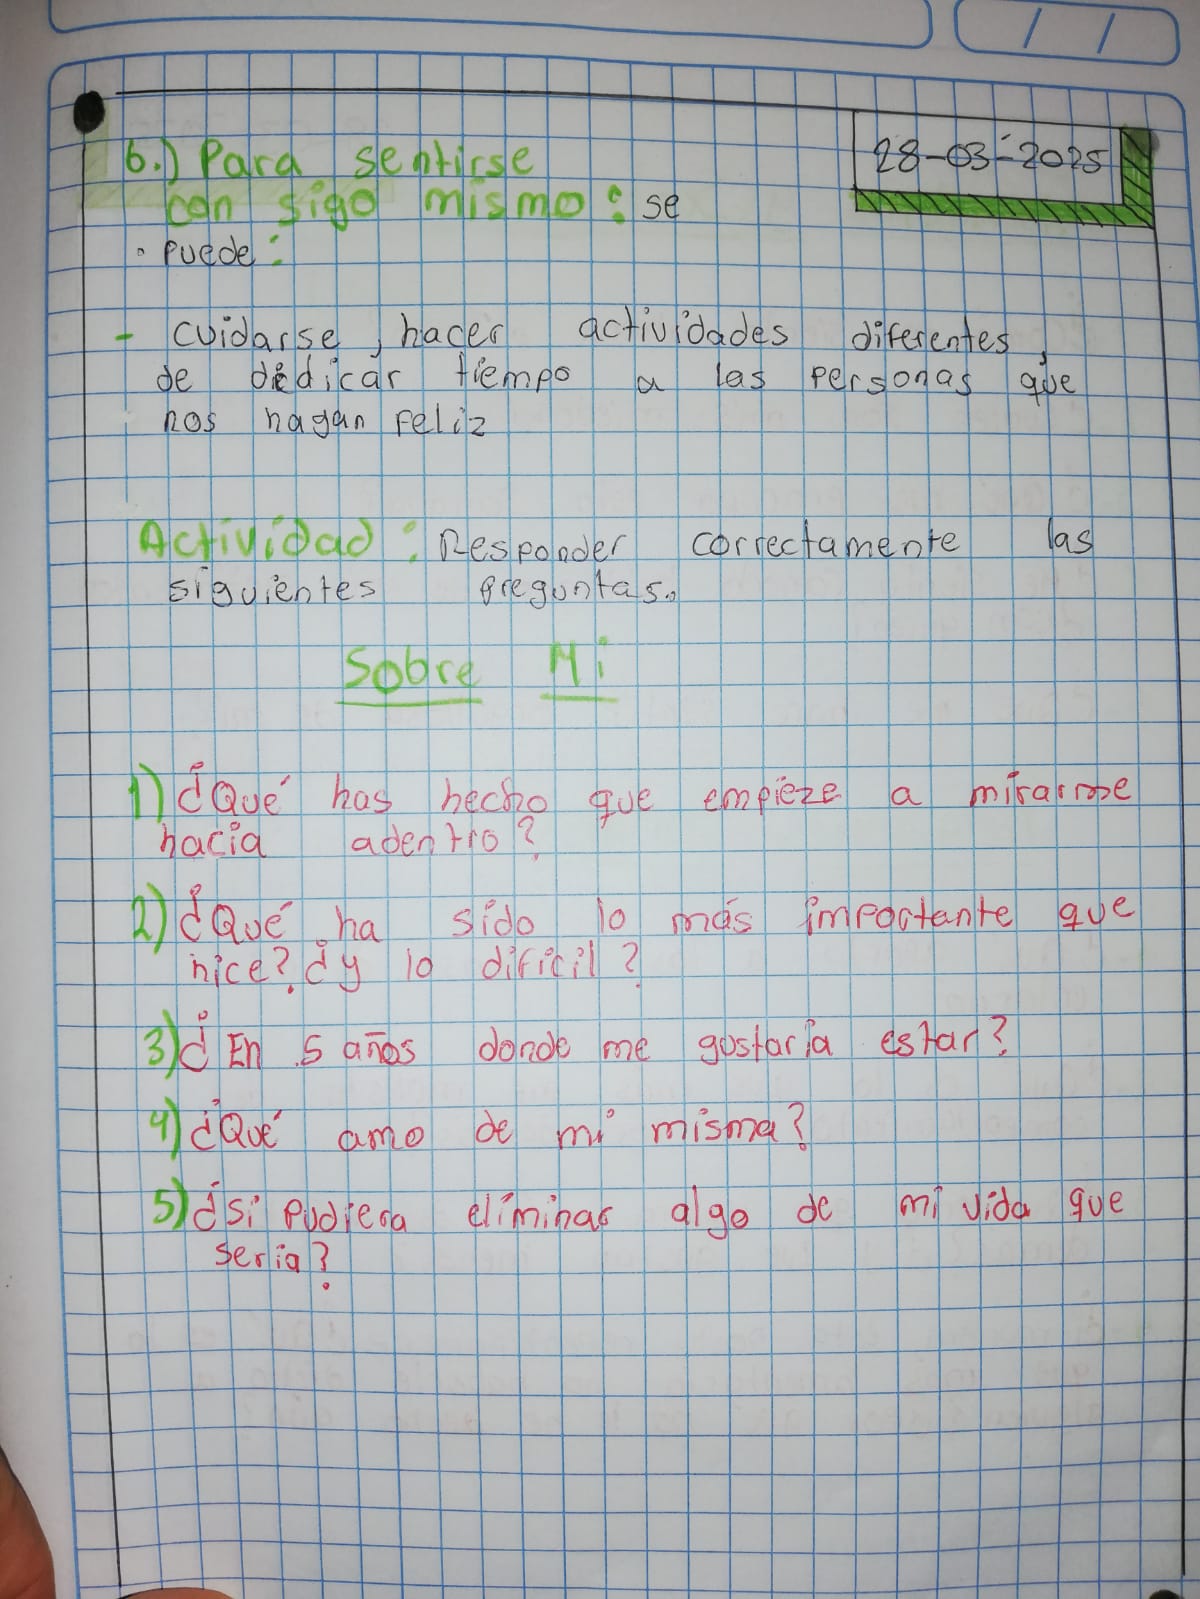 28-03-2025
6.) Para sentirse
con sigo mismo: se
• puede:
- cuidarse, hacer actividades diferentes,
de dedicar tiempo a las personas que
nos hagan feliz
Actividad: Responder correctamente las
siguientes preguntas.
Sobre Mi
1) ¿Qué has hecho que empieze a mirarme
hacia adentro?
2) ¿Qué ha sido lo más importante que
hice? ¿y lo dificil?
3) ¿En 5 años donde me gustaria estar?
4) ¿Qué amo de mi misma?
5) ¿si pudiera eliminar algo de mi vida que
seria?